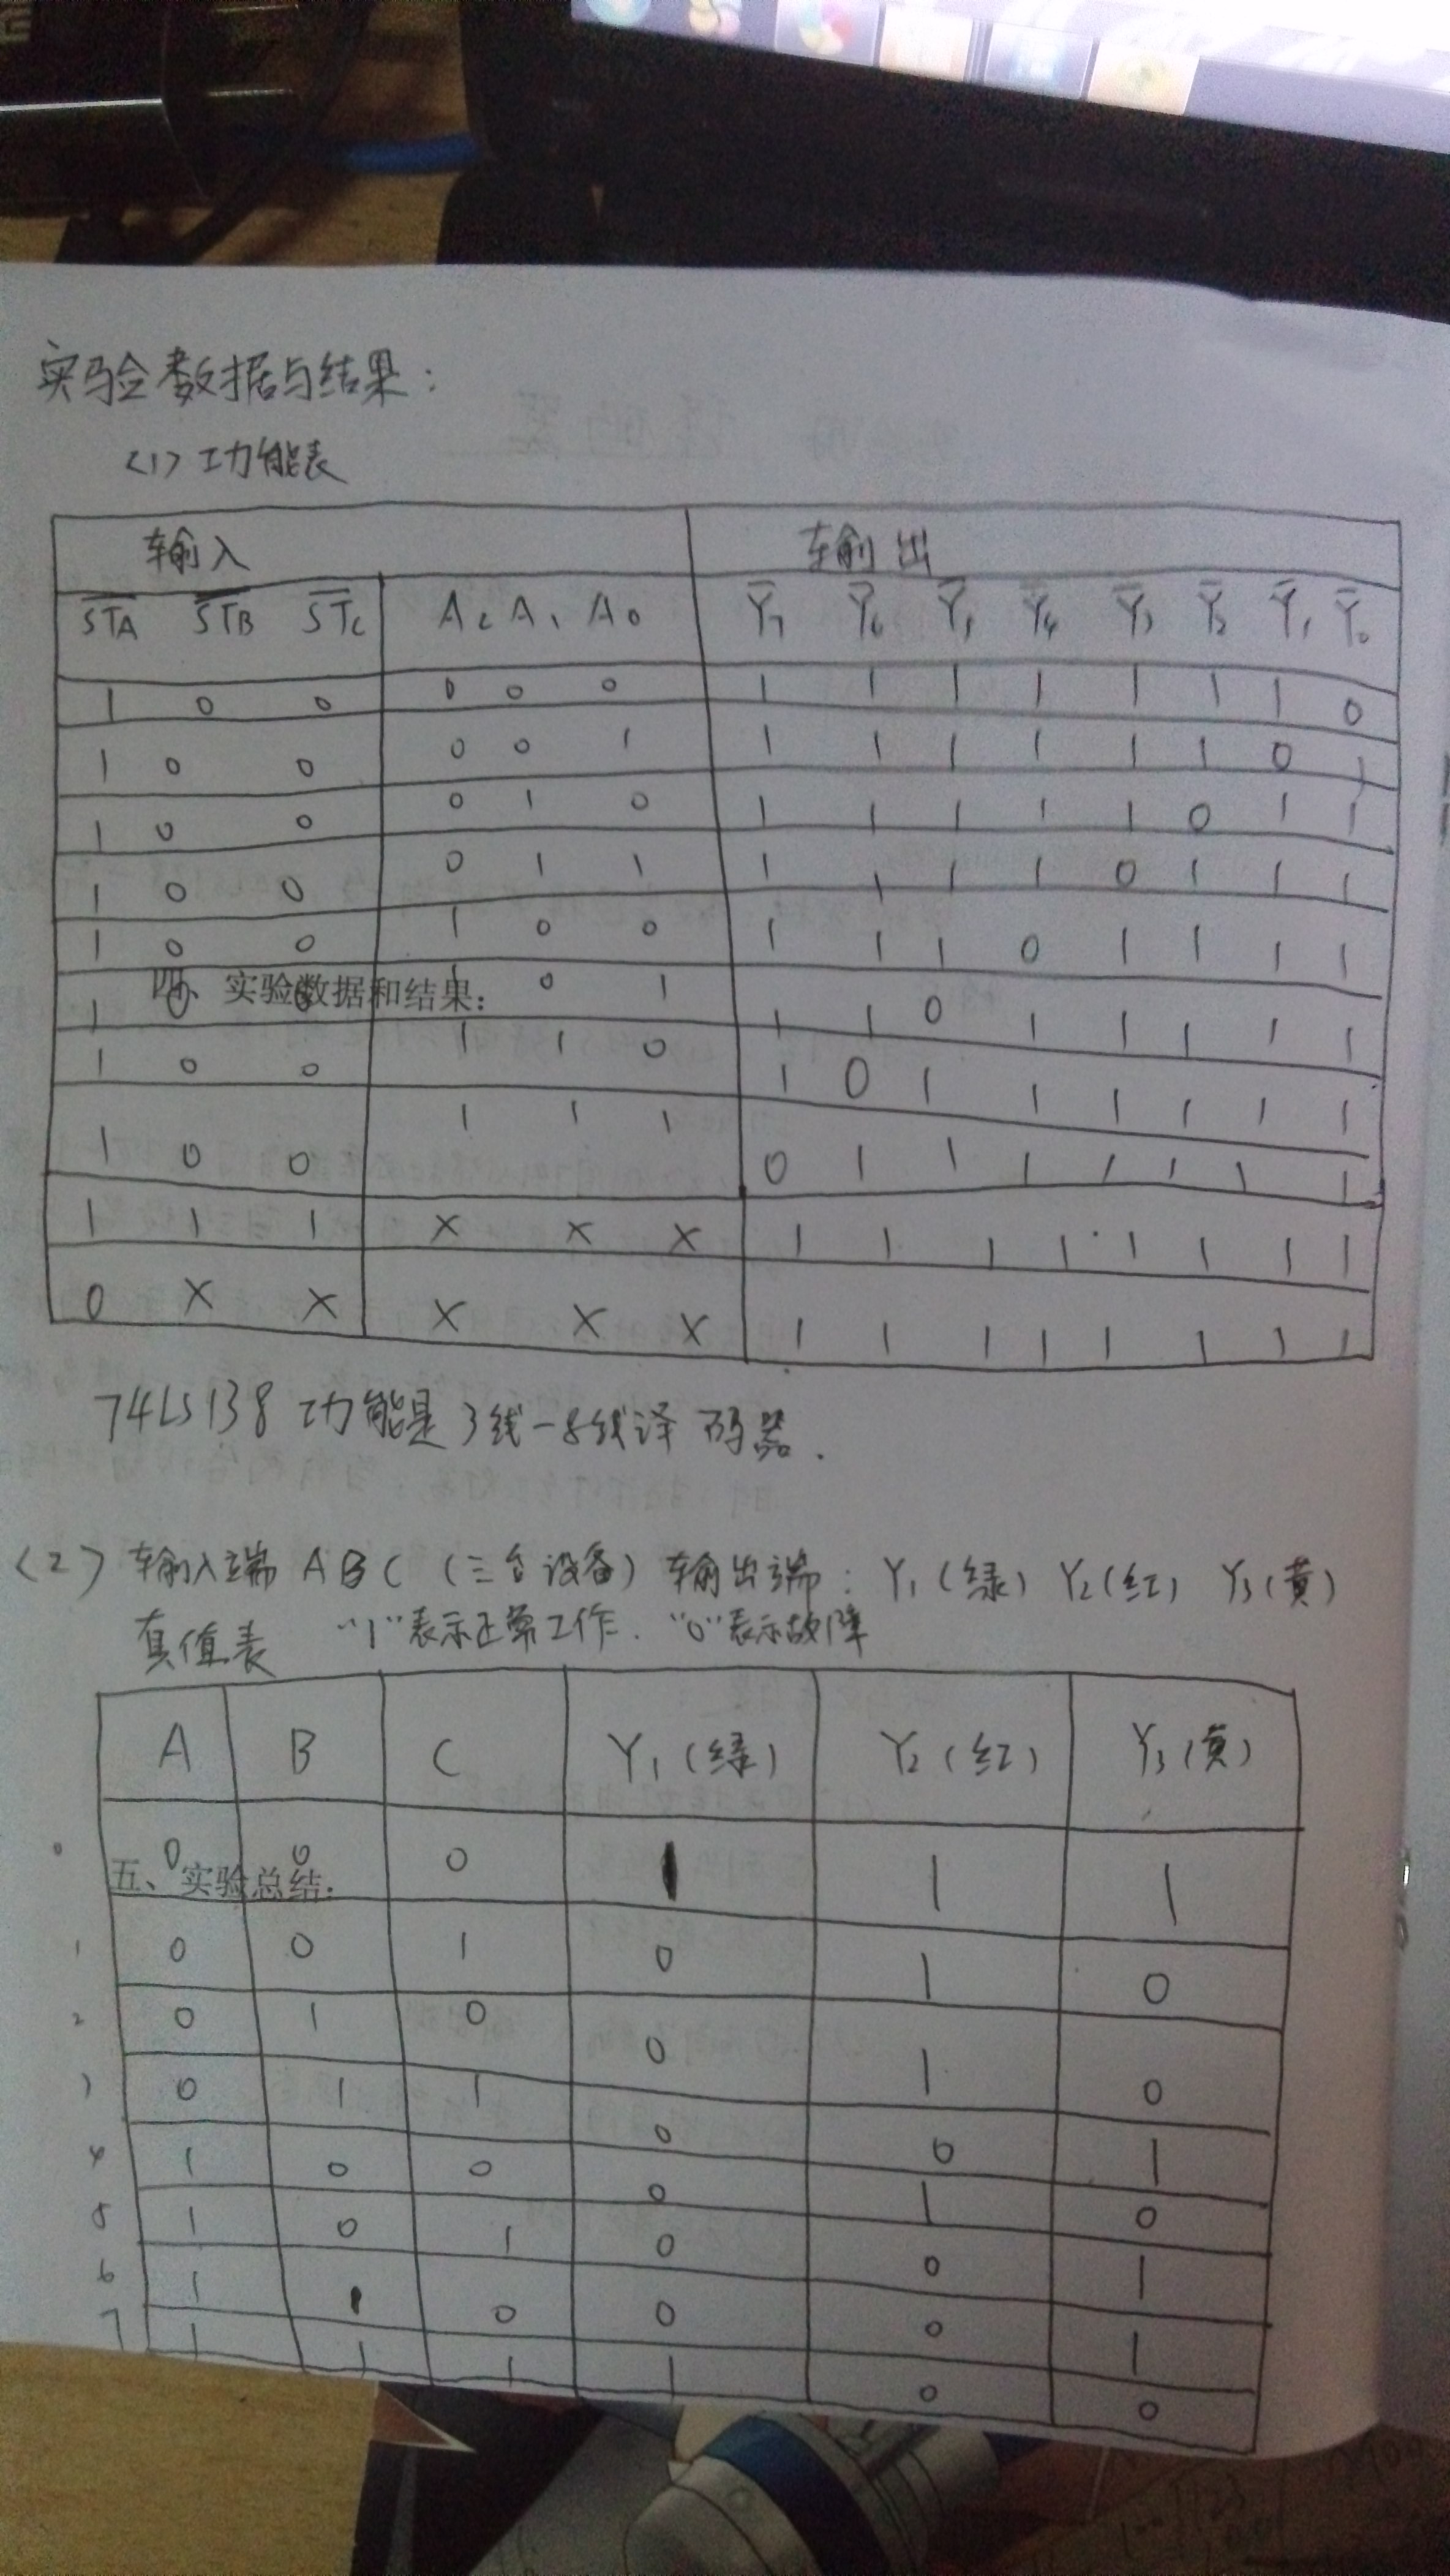 实验数据与结果：
<1> 功能表
输入 输出
S̅T̅A̅ S̅T̅B̅ S̅T̅C̅ A₂ A₁ A₀ Y̅₇ Y̅₆ Y̅₅ Y̅₄ Y̅₃ Y̅₂ Y̅₁ Y̅₀
1 0 0 0 0 0 1 1 1 1 1 1 1 0
1 0 0 0 0 1 1 1 1 1 1 1 0 1
1 0 0 0 1 0 1 1 1 1 1 0 1 1
1 0 0 0 1 1 1 1 1 1 0 1 1 1
1 0 0 1 0 0 1 1 1 0 1 1 1 1
四、实验数据和结果：
1 0 0 1 0 1 1 1 0 1 1 1 1 1
1 0 0 1 1 0 1 0 1 1 1 1 1 1
1 0 0 1 1 1 0 1 1 1 1 1 1 1
1 1 1 × × × 1 1 1 1 1 1 1 1
0 × × × × × 1 1 1 1 1 1 1 1
74LS138 功能是3线-8线译码器.
<2> 输入端 A B C (三台设备) 输出端: Y₁(绿) Y₂(红) Y₃(黄)
真值表 "1"表示正常工作. "0"表示故障
A B C Y₁(绿) Y₂(红) Y₃(黄)
0 0 0 0 1 1 1
五、实验总结：
1 0 0 1 0 1 0
2 0 1 0 0 1 0
3 0 1 1 0 0 1
4 1 0 0 0 1 0
5 1 0 1 0 0 1
6 1 1 0 0 0 1
7 1 1 1 1 0 0